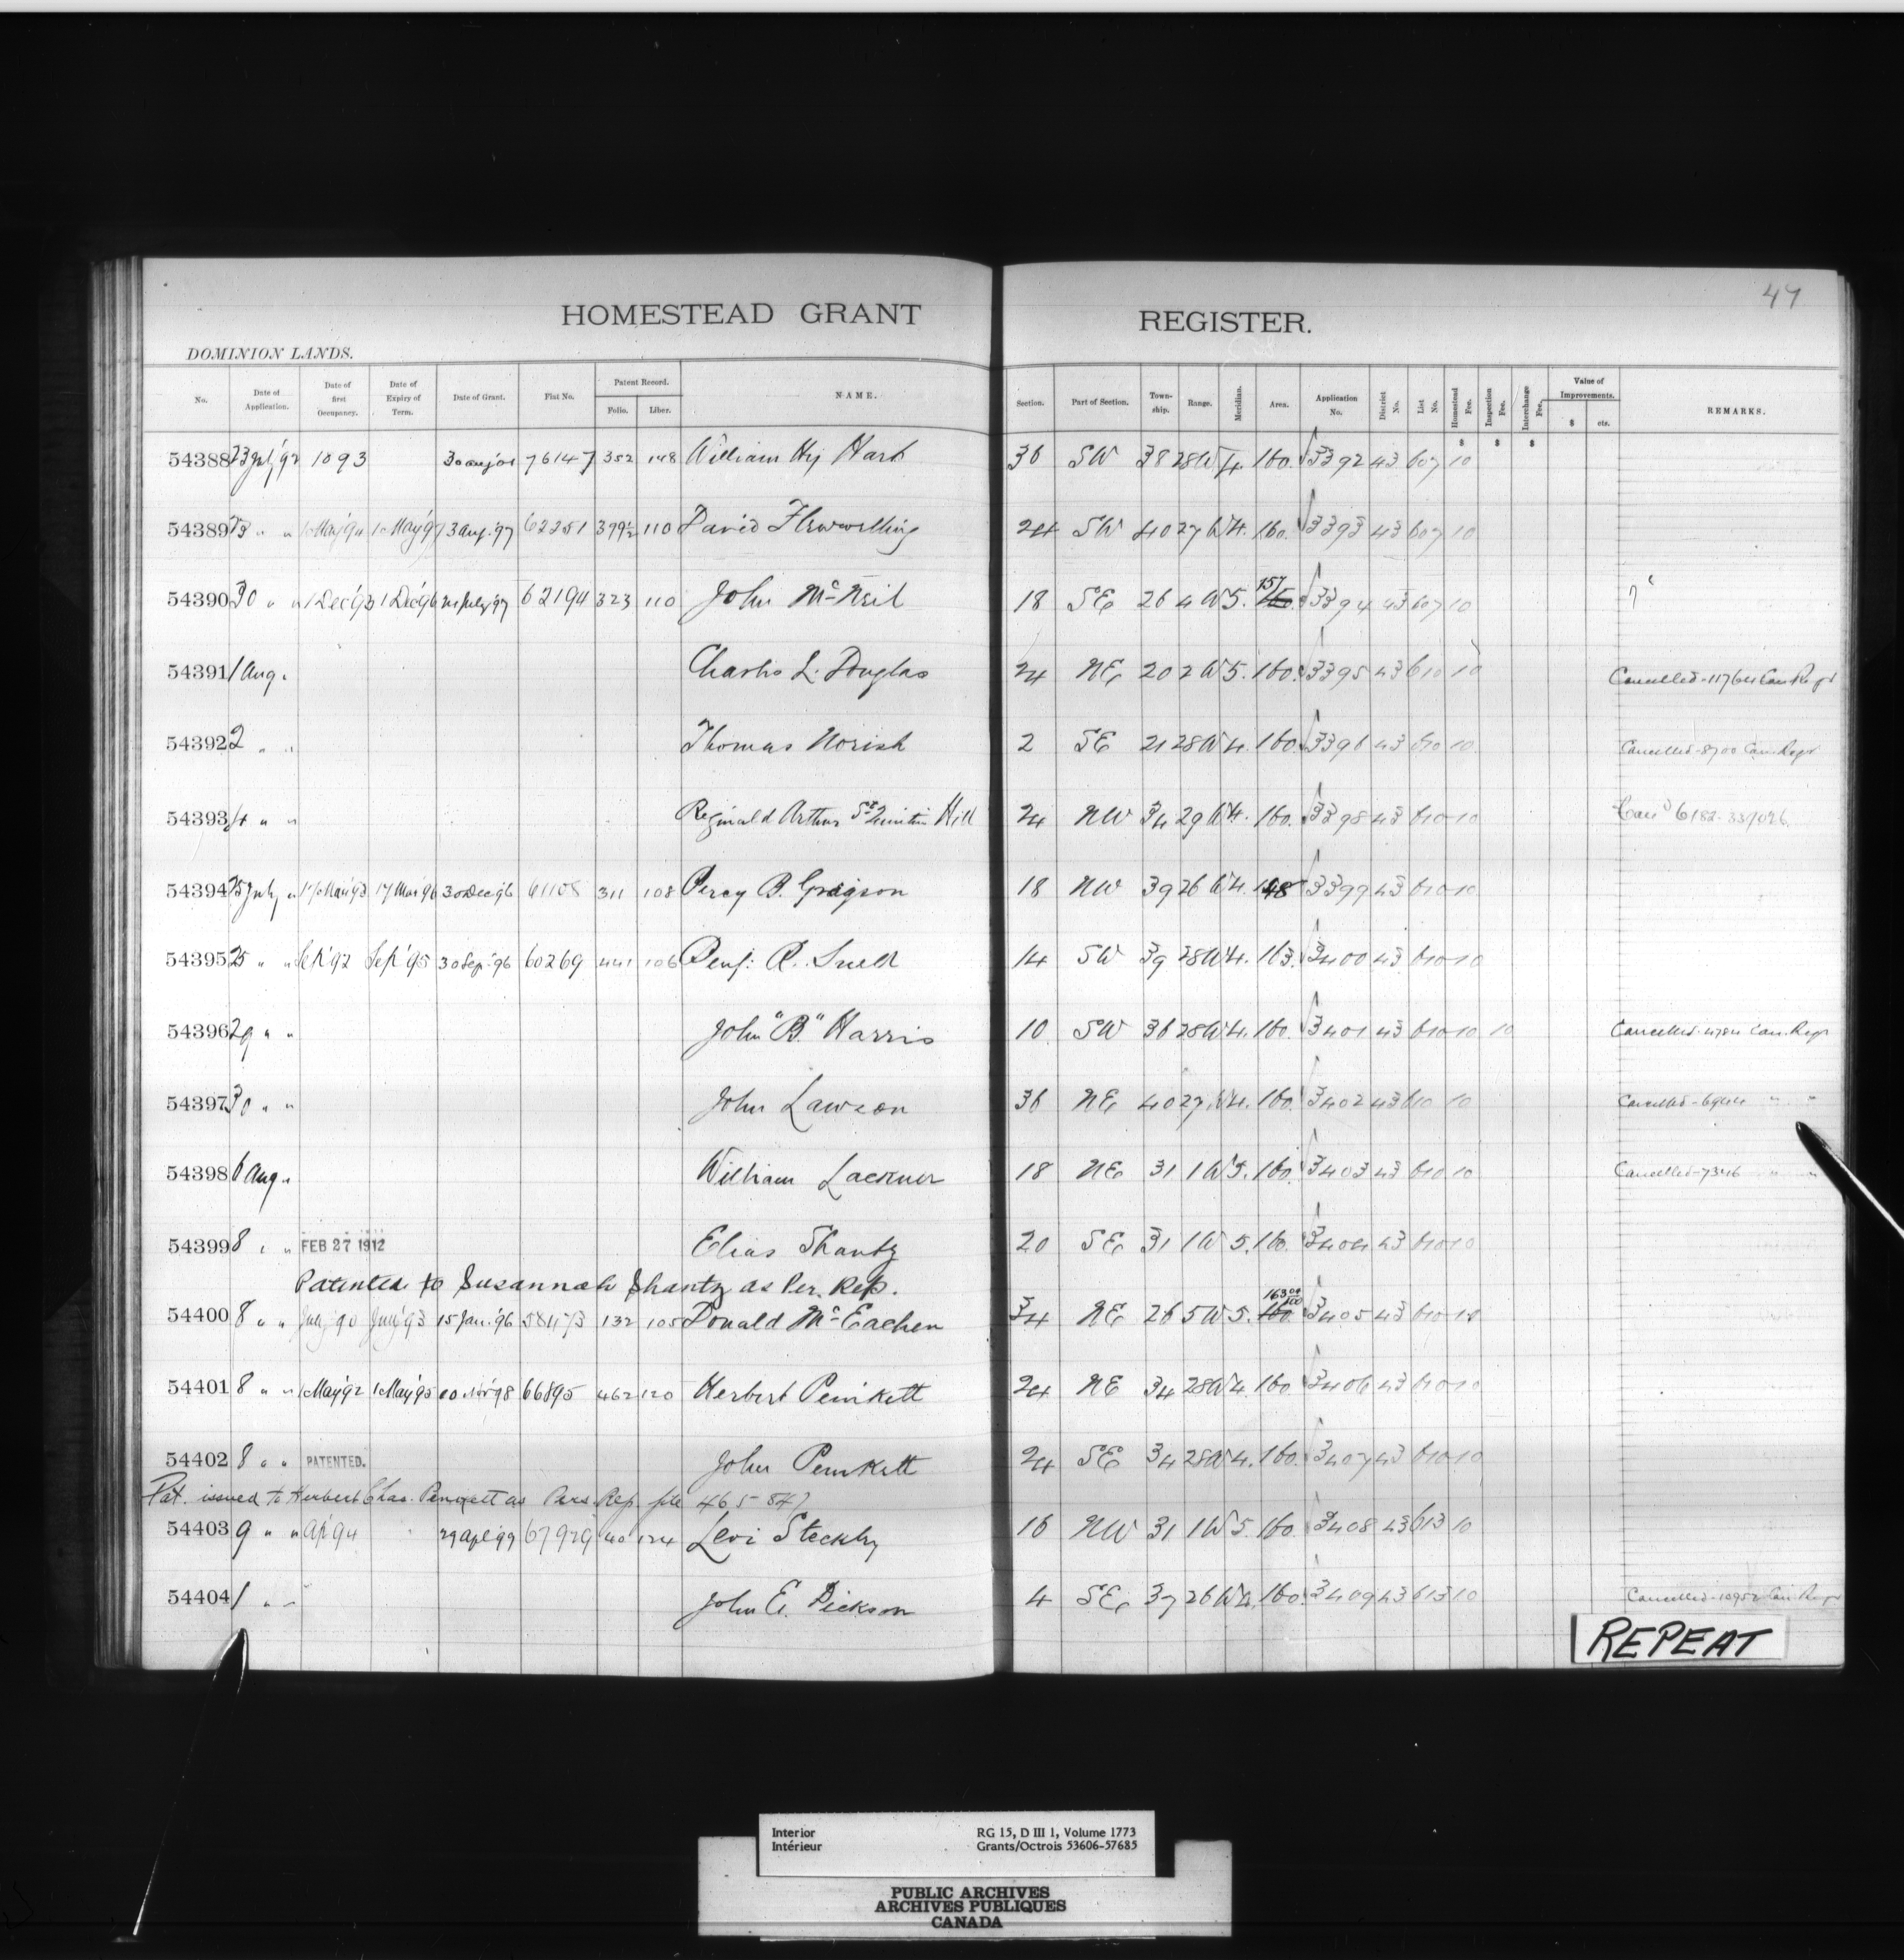 47
HOMESTEAD GRANT REGISTER.
DOMINION LANDS.
No. Date of Application. Date of first Occupancy. Date of Expiry of Term. Date of Grant. Fiat No. Patent Record. Folio. Liber. NAME. Section. Part of Section. Township. Range. Meridian. Area. Application No. District No. List No. Homestead Fee. Inspection Fee. Interchange Fee. Value of Improvements. $ cts. REMARKS.
$ $ $
54388 23 July '92 1893 76147 352 148 William Hy Hart 36 SW 38 28 W 4. 160. 3392 43 607 10
54389 23 " " 1 May '94 1 May '97 3 Aug. '97 62251 399½ 110 David 24 SW 40 27 W 4. 160. 3393 43 607 10
54390 30 " " 1 Dec '93 1 Dec '96 21 July '97 62194 323 110 John McNeil 18 SE 26 4 W 5. 157 160. 3394 43 607 10
54391 1 Aug. Charles L. Douglas 24 NE 20 2 W 5. 160. 3395 43 610 10 Cancelled - 11764 Can. Regr
54392 2 " " Thomas Norish 2 SE 21 28 W 4. 160. 3396 43 610 10 Cancelled - 8700 Can. Regr
54393 4 " " Reginald Arthur St Quintin Hill 24 NW 34 29 W 4. 160. 3398 43 610 10 Can'd 6182
54394 25 July " 17 Mar '93 17 Mar '96 30 Dec '96 61108 311 108 Percy B. Gregson 18 NW 39 26 W 4. 148 3399 43 610 10
54395 25 " " Sep '92 Sep '95 30 Sep. '96 60269 441 106 Benj. R. Snell 14 SW 39 28 W 4. 163. 3400 43 610 10
54396 29 " " John "B." Harris 10 SW 36 28 W 4. 160. 3401 43 610 10 10 Cancelled - 4784 Can. Regr
54397 30 " " John Lawson 36 NE 40 27 W 4. 160. 3402 43 610 10 Cancelled - 6944 " "
54398 6 Aug " William Lackner 18 NE 31 1 W 5. 160. 3403 43 610 10 Cancelled - 7346 " "
54399 8 " " FEB 27 1912 Elias Shantz 20 SE 31 1 W 5. 160. 3404 43 610 10
Patented to Susannah Shantz as Per. Rep.
54400 8 " " July '90 July '93 15 Jan. '96 58473 132 105 Donald McEachen 34 NE 26 5 W 5. 163 160. 3405 43 610 10
54401 8 " " 1 May '92 1 May '95 10 Nov '98 66895 462 120 Herbert Penkett 24 NE 34 28 W 4. 160. 3406 43 610 10
54402 8 " " PATENTED. John Penkett 24 SE 34 28 W 4. 160. 3407 43 610 10
Pat. issued to Herbert Chas. Penkett as Pers. Rep. file 465847
54403 9 " " Ap '94 29 Apl '99 67929 40 124 Levi Steckly 16 NW 31 1 W 5. 160. 3408 43 613 10
54404 1 " " John E. Dickson 4 SE 37 26 W 4. 160. 3409 43 613 10 Cancelled - 10952 Can. Regr
REPEAT
Interior RG 15, D III 1, Volume 1773
Intérieur Grants/Octrois 53606-57685
PUBLIC ARCHIVES
ARCHIVES PUBLIQUES
CANADA